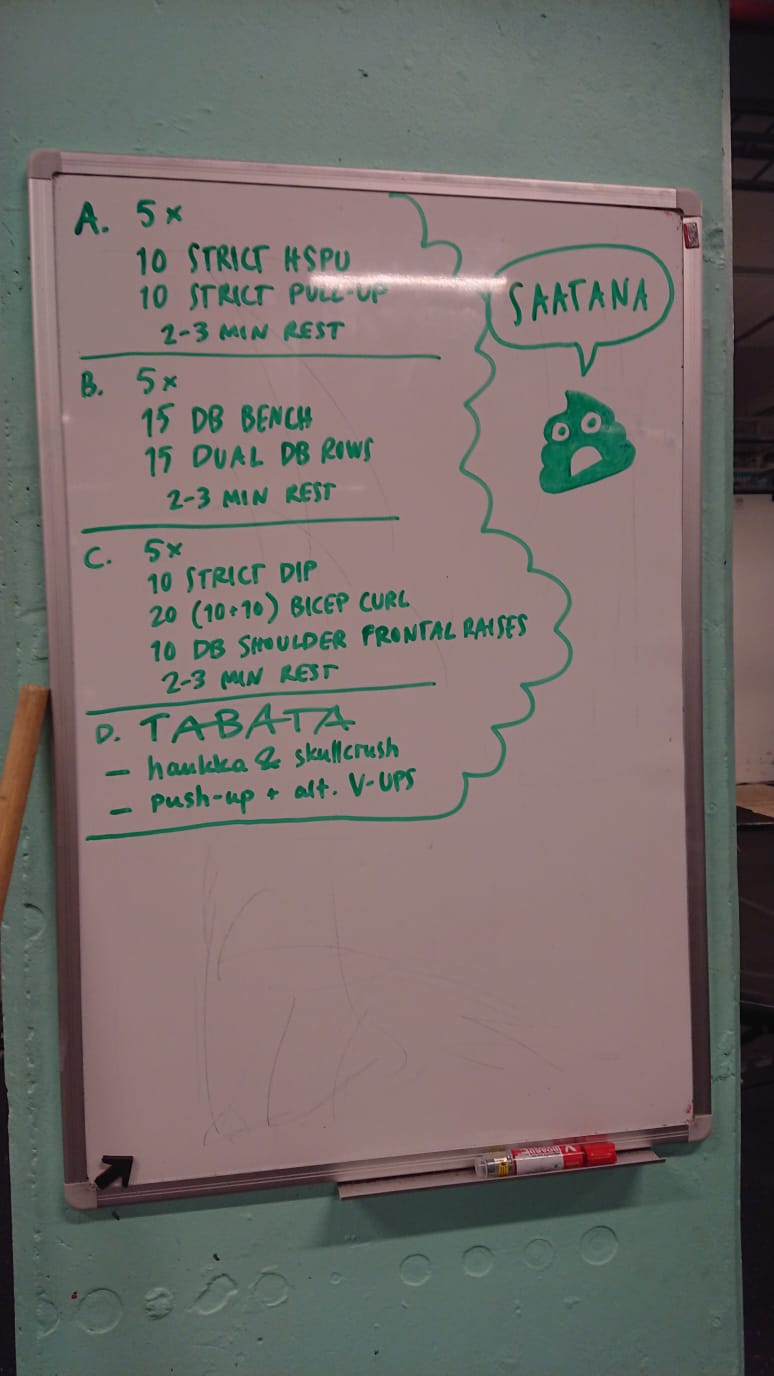 A. 5x
10 STRICT HSPU
10 STRICT PULL-UP
2-3 MIN REST
B. 5x
15 DB BENCH
15 DUAL DB ROWS
2-3 MIN REST
C. 5x
10 STRICT DIP
20 (10+10) BICEP CURL
10 DB SHOULDER FRONTAL RAISES
2-3 MIN REST
D. TABATA
- haukka & skullcrush
- push-up + alt. V-UPS
SAATANA